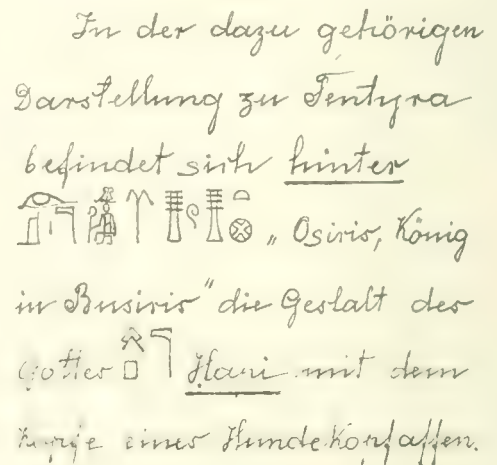 In der dazu gehörigen
Darstellung zu Tentyra
befindet sich hinter
„Osiris, König
in Busiris" die Gestalt des
Gottes Hani mit dem
Kopfe eines Hundskopfaffen.